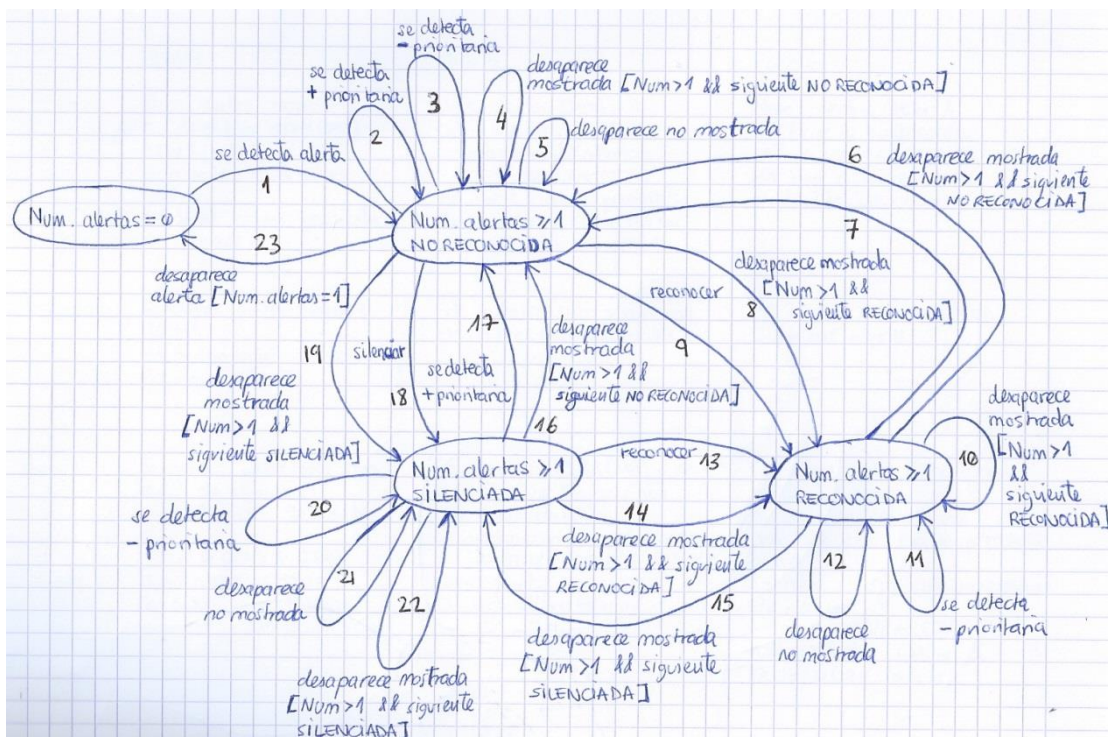 se detecta
- prioritaria
se detecta
+ prioritaria
3
desaparece
mostrada [Num>1 && siguiente NO RECONOCIDA]
4
2
5
desaparece no mostrada
se detecta alerta
1
6
desaparece mostrada
[Num>1 && siguiente
NO RECONOCIDA]
Num. alertas = φ
Num. alertas ≥ 1
NO RECONOCIDA
7
23
desaparece
alerta [Num. alertas=1]
desaparece mostrada
[Num>1 &&
siguiente RECONOCIDA]
reconocer
8
17
19
silenciar
desaparece
mostrada
[Num>1 &&
siguiente NO RECONOCIDA]
9
se detecta
+ prioritaria
18
desaparece
mostrada
[Num>1 &&
siguiente SILENCIADA]
16
desaparece
mostrada
[Num>1
&&
siguiente
RECONOCIDA]
10
Num. alertas ≥ 1
SILENCIADA
reconocer
13
Num. alertas ≥ 1
RECONOCIDA
20
se detecta
- prioritaria
14
desaparece mostrada
[Num>1 && siguiente
RECONOCIDA]
12
11
21
desaparece
no mostrada
22
15
se detecta
- prioritaria
desaparece
no mostrada
desaparece mostrada
[Num>1 && siguiente
SILENCIADA]
desaparece mostrada
[Num>1 && siguiente
SILENCIADA]